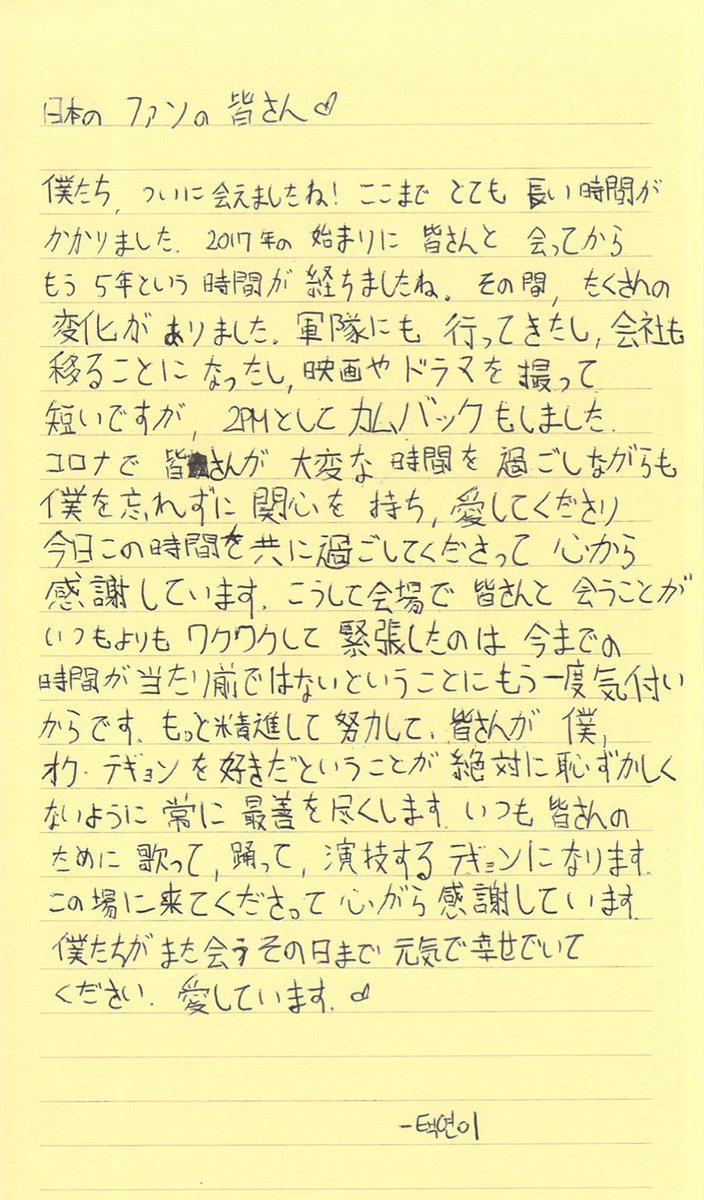 日本の ファンの 皆さん♡
僕たち, ついに会えましたね! ここまで とても 長い時間が
かかりました. 2017年の 始まりに 皆さんと 会ってから
もう 5年という 時間が 経ちましたね. その間, たくさんの
変化が ありました. 軍隊にも 行ってきたし, 会社も
移ることに なったし, 映画や ドラマを 撮って
短いですが, 2PMとして カムバックもしました.
コロナで 皆さんが 大変な 時間を 過ごしながらも
僕を忘れずに 関心を 持ち, 愛してくださり
今日この時間を共に過ごしてくださって 心から
感謝しています. こうして会場で 皆さんと 会うことが
いつもよりも ワクワクして 緊張したのは 今までの
時間が当たり前ではないということにもう一度気付い
からです. もっと精進して 努力して. 皆さんが 僕,
オク・テギョンを好きだということが 絶対に恥ずかしく
ないように 常に 最善を尽くします. いつも 皆さんの
ために 歌って, 踊って, 演技する テギョンになります.
この場に来てくださって 心がら 感謝しています.
僕たちがまた会う その日まで 元気で幸せでいて
ください. 愛しています. ♡
-택연이